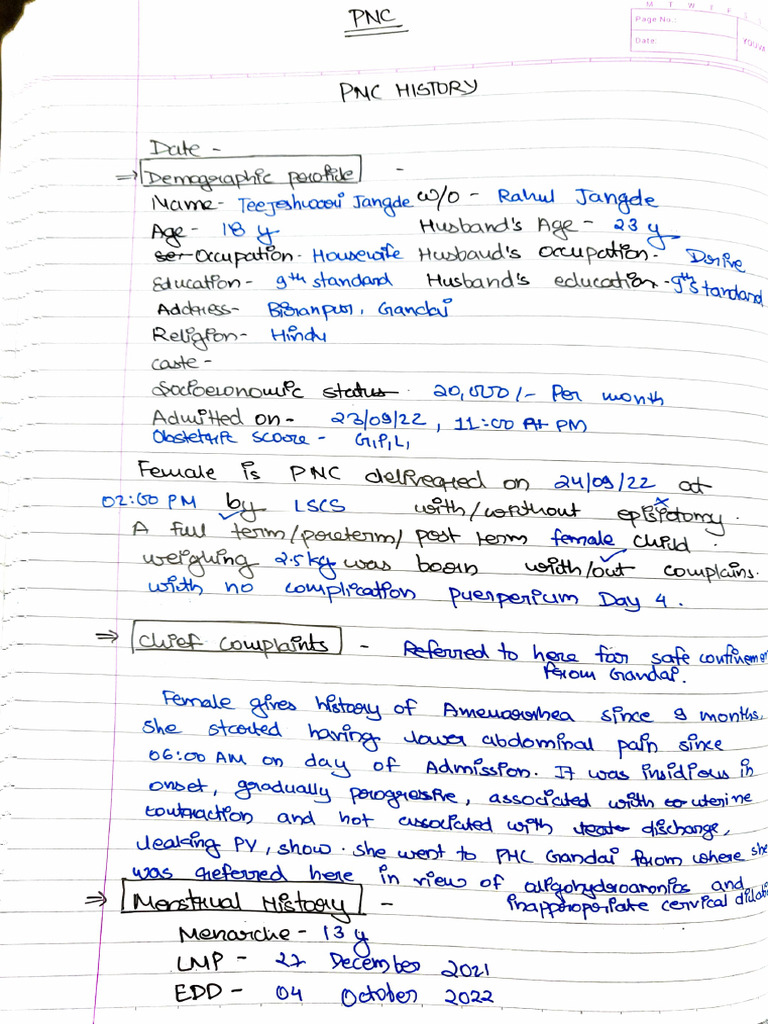 PNC
M T W T F S S
Page No.:
Date:
YOUVA
PNC HISTORY
Date -
⇒ Demographic profile -
Name - Teejeshwari Jangde w/o - Rahul Jangde
Age - 18 y Husband's Age - 23 y
Occupation - Housewife Husband's occupation - Drive
Education - 9th standard Husband's education - 9th standard
Address - Biranpur, Gandai
Religion - Hindu
Caste -
Socioeconomic status 20,000/- Per month
Admitted on - 23/09/22, 11:00 PM
Obstetric score - G1P1L1
Female is PNC delivered on 24/09/22 at
02:00 PM by LSCS with/without episiotomy.
A full term/preterm/post term female child
weighing 2.5 kg was born with/out complains.
with no complication puerperium Day 4.
⇒ Chief complaints - Referred to here for safe confinement
from Gandai.
Female gives history of Amenorrhea since 9 months,
she started having lower abdominal pain since
06:00 AM on day of Admission. It was insidious in
onset, gradually progressive, associated with uterine
contraction and not associated with discharge,
leaking PV, show. she went to PHC Gandai from where she
was referred here in view of oligohydroamnios and
inappropriate cervical dilati
⇒ Menstrual History -
Menarche - 13 y
LMP - 27 December 2021
EDD - 04 October 2022